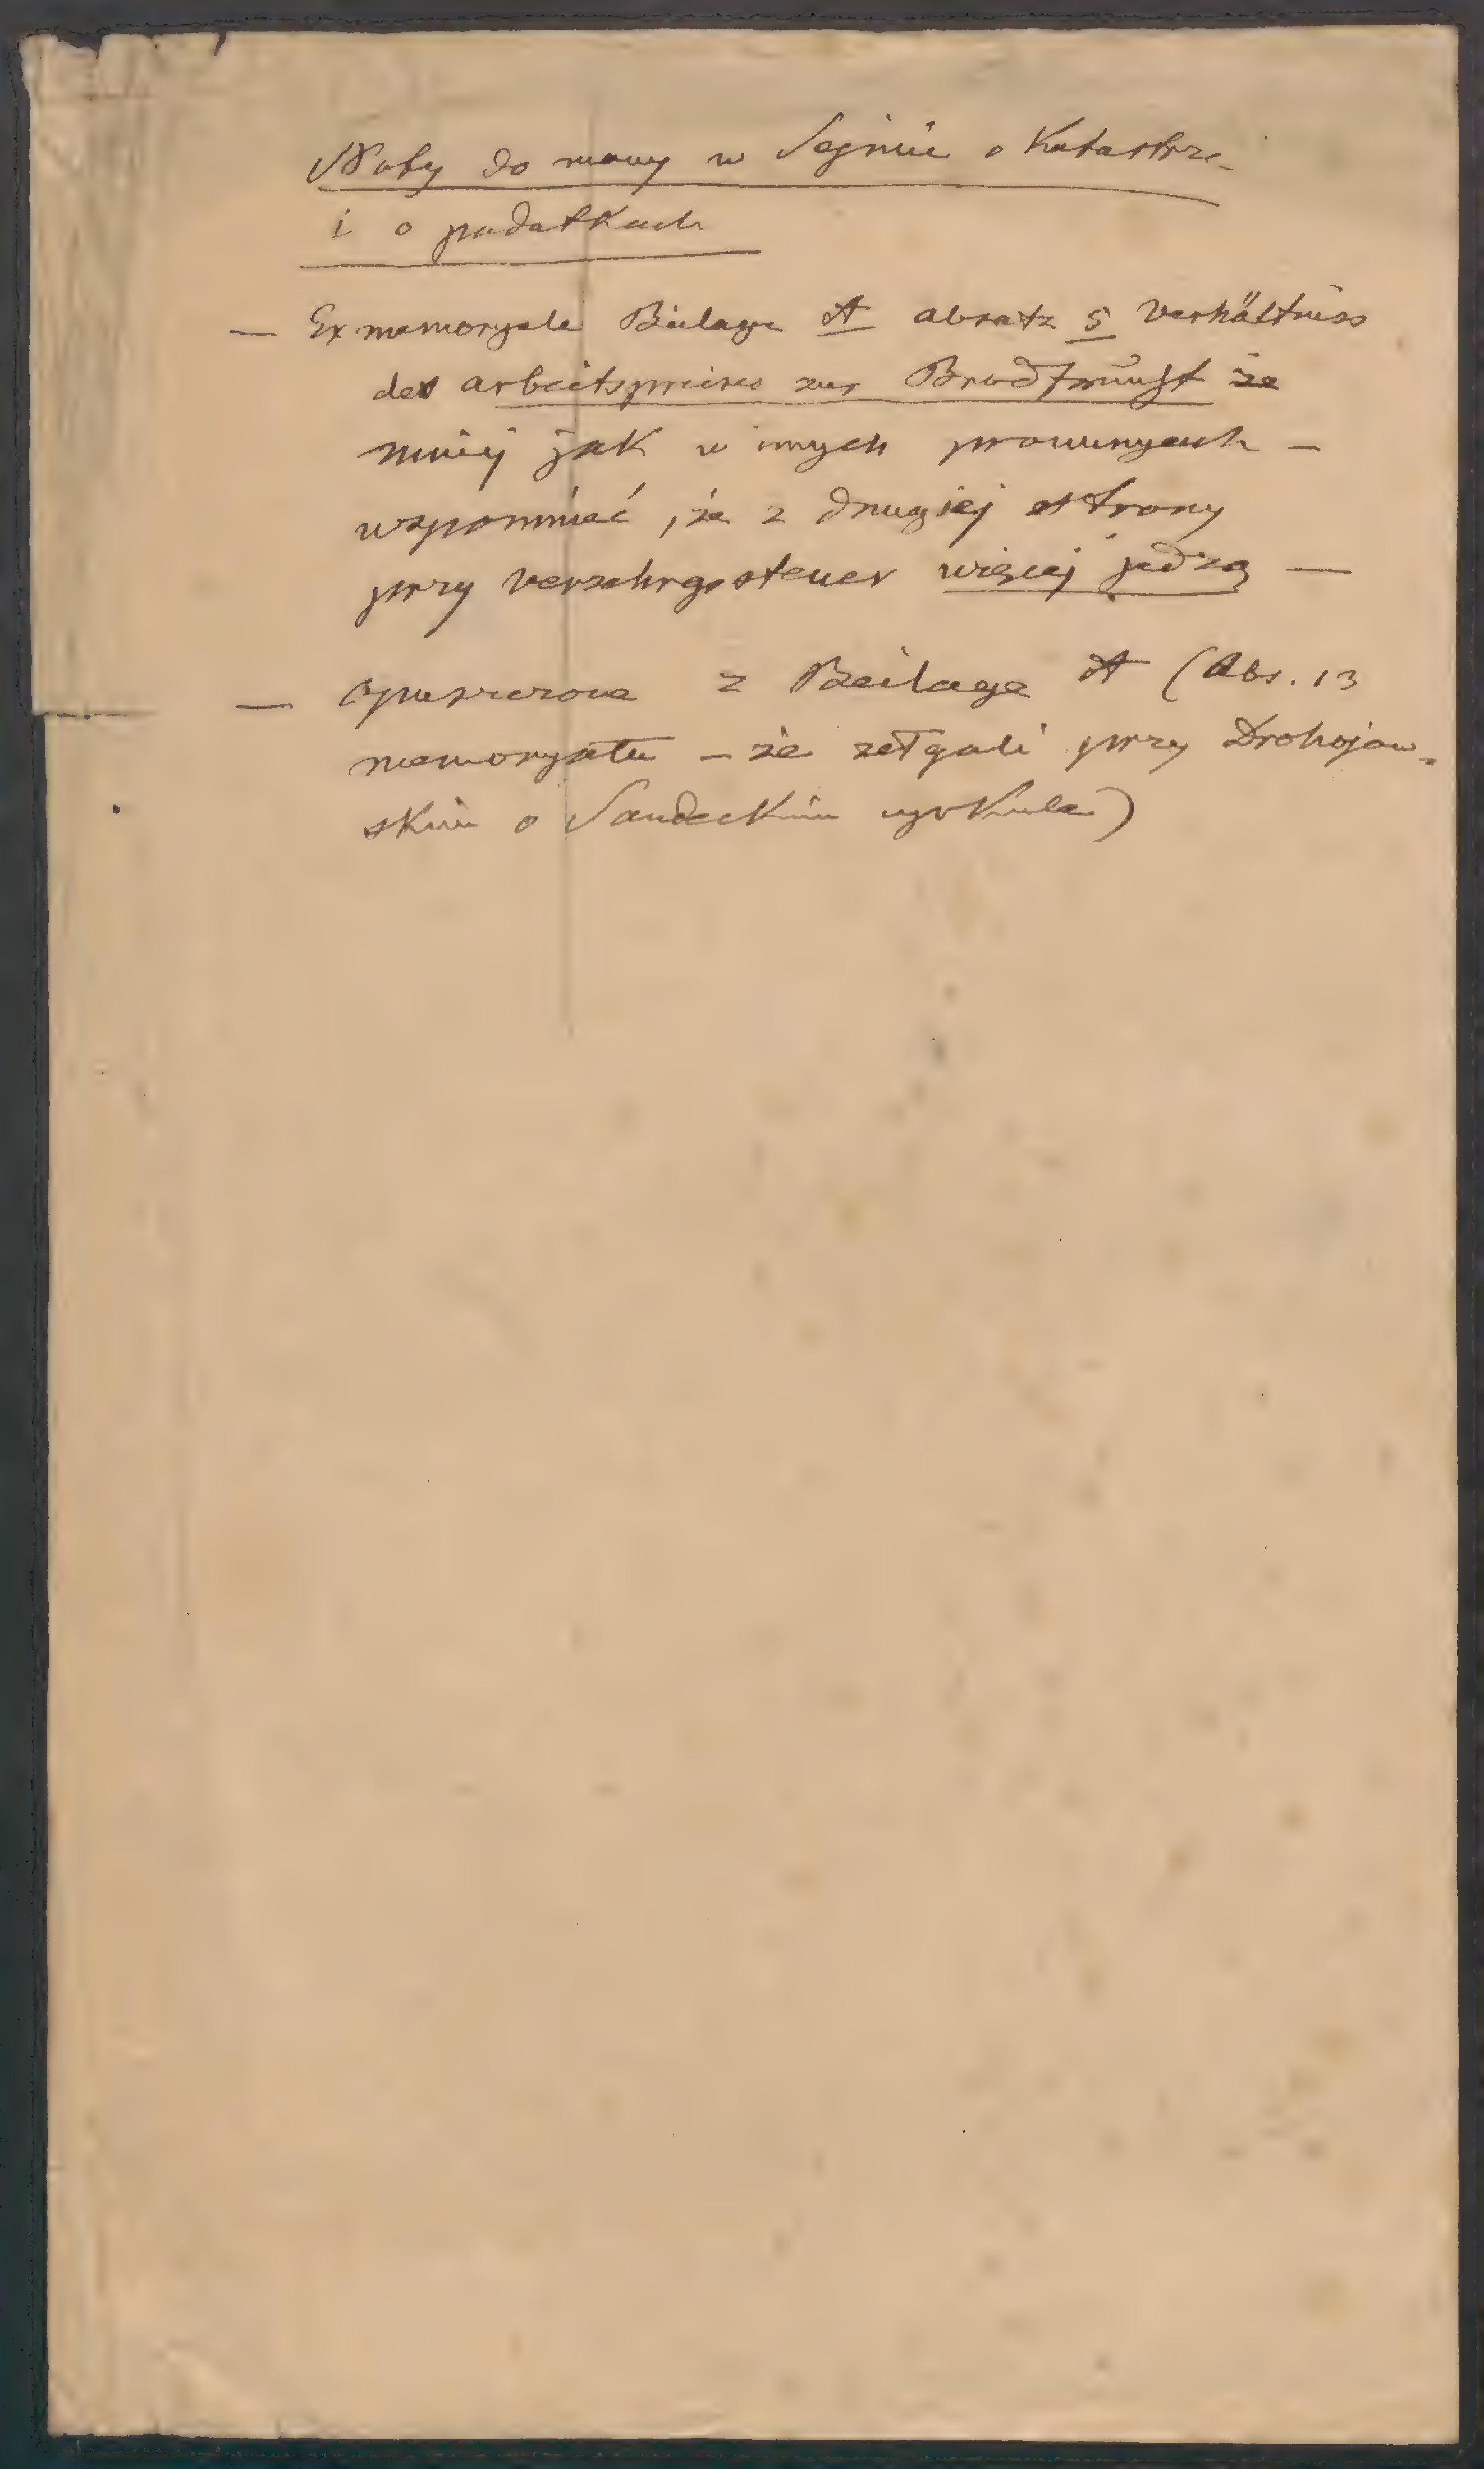 Noty do mowy w Sejmie o Katastrze
i o podatkach
— Ex memoryale Beilage A absatz 5 Verhältniss
des arbeitspreises zur Brodfrucht że
mniej jak w innych prowincyach —
wspomnieć, że z drugiej strony
przy verzehrgssteuer więcej jedzą —
— opuszczone z Beilage A (Abs. 13
memoryału — że zełgali przy Drohojow-
skim o Sandeckim cyrkule)